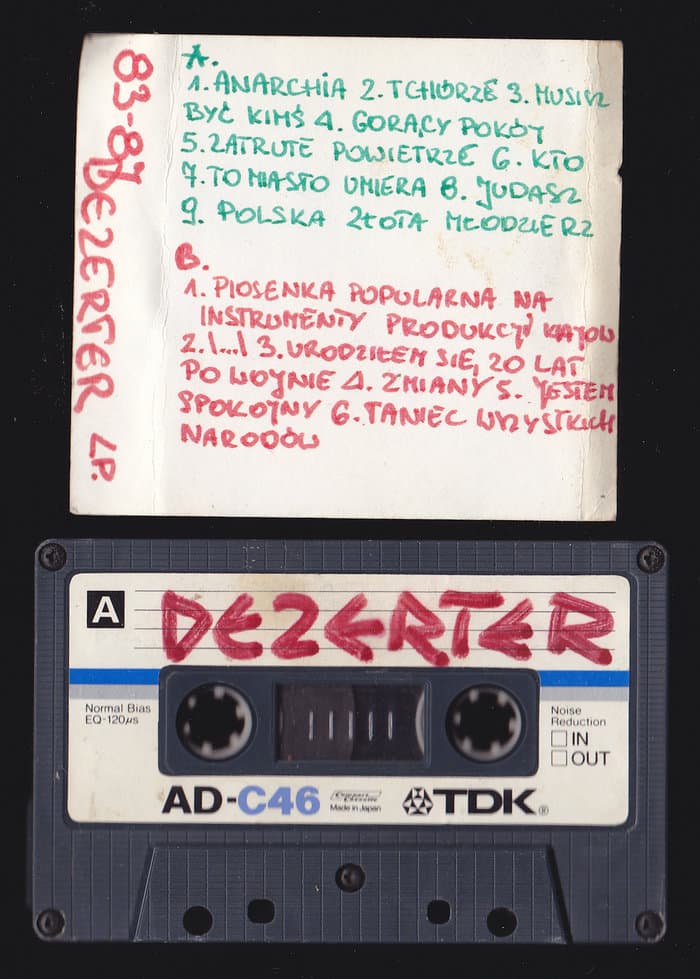 83-87 DEZERTER LP.
A.
1. ANARCHIA 2. TCHÓRZE 3. MUSISZ
BYĆ KIMŚ 4. GORĄCY POKÓJ
5. ZATRUTE POWIETRZE 6. KTO
7. TO MIASTO UMIERA 8. JUDASZ
9. POLSKA ZŁOTA MŁODZIERZ
B.
1. PIOSENKA POPULARNA NA
INSTRUMENTY PRODUKCJI KRAJOW
2. \...\ 3. URODZIŁEM SIĘ, 20 LAT
PO WOJNIE 4. ZMIANY 5. JESTEM
SPOKOJNY 6. TANIEC WSZYSTKICH
NARODÓW
A
DEZERTER
Normal Bias
EQ-120μs
Noise
Reduction
IN
OUT
AD-C46
Compact Cassette
Made in Japan
TDK®